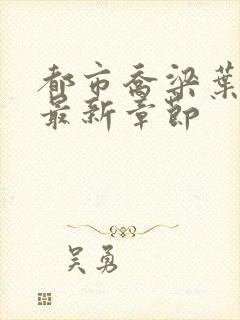 都市乔梁葉
最新章節
吴勇